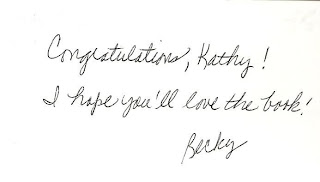 Congratulations, Kathy!
I hope you'll love the book!
Becky